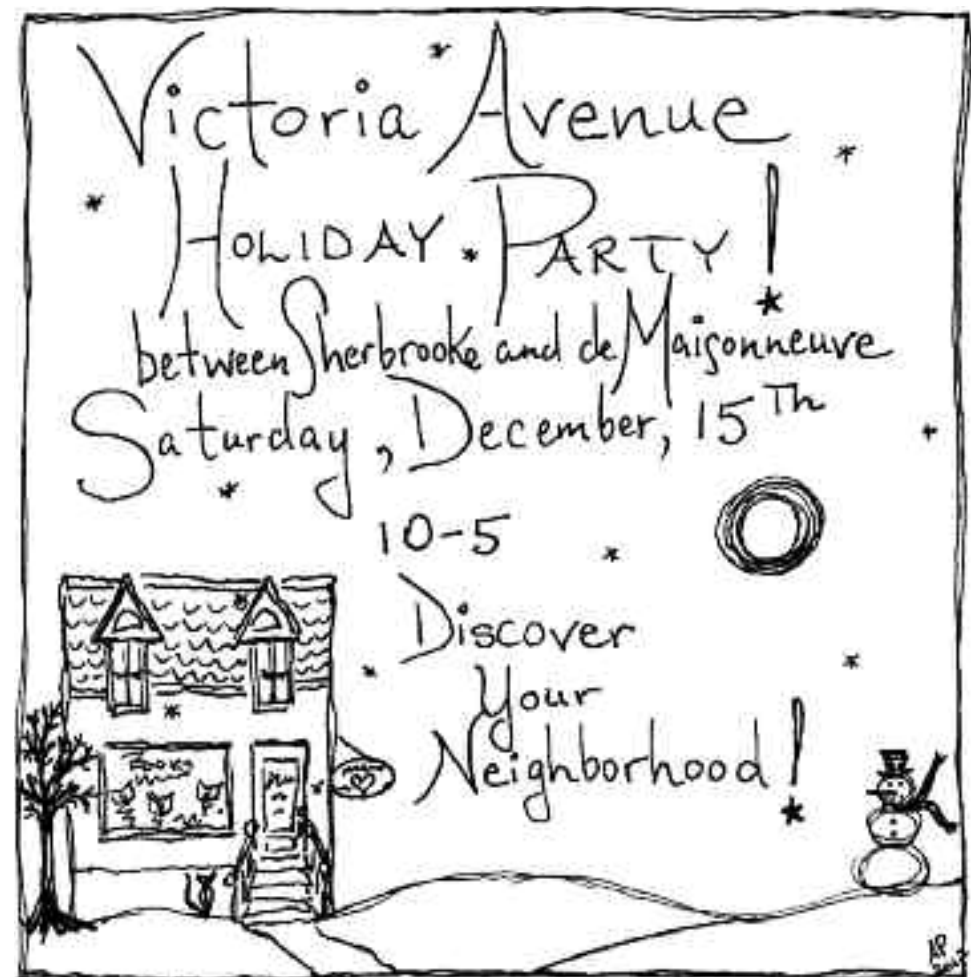 Victoria Avenue
HOLIDAY PARTY!
between Sherbrooke and de Maisonneuve
Saturday, December, 15Th
10-5
Discover
Your
Neighborhood!